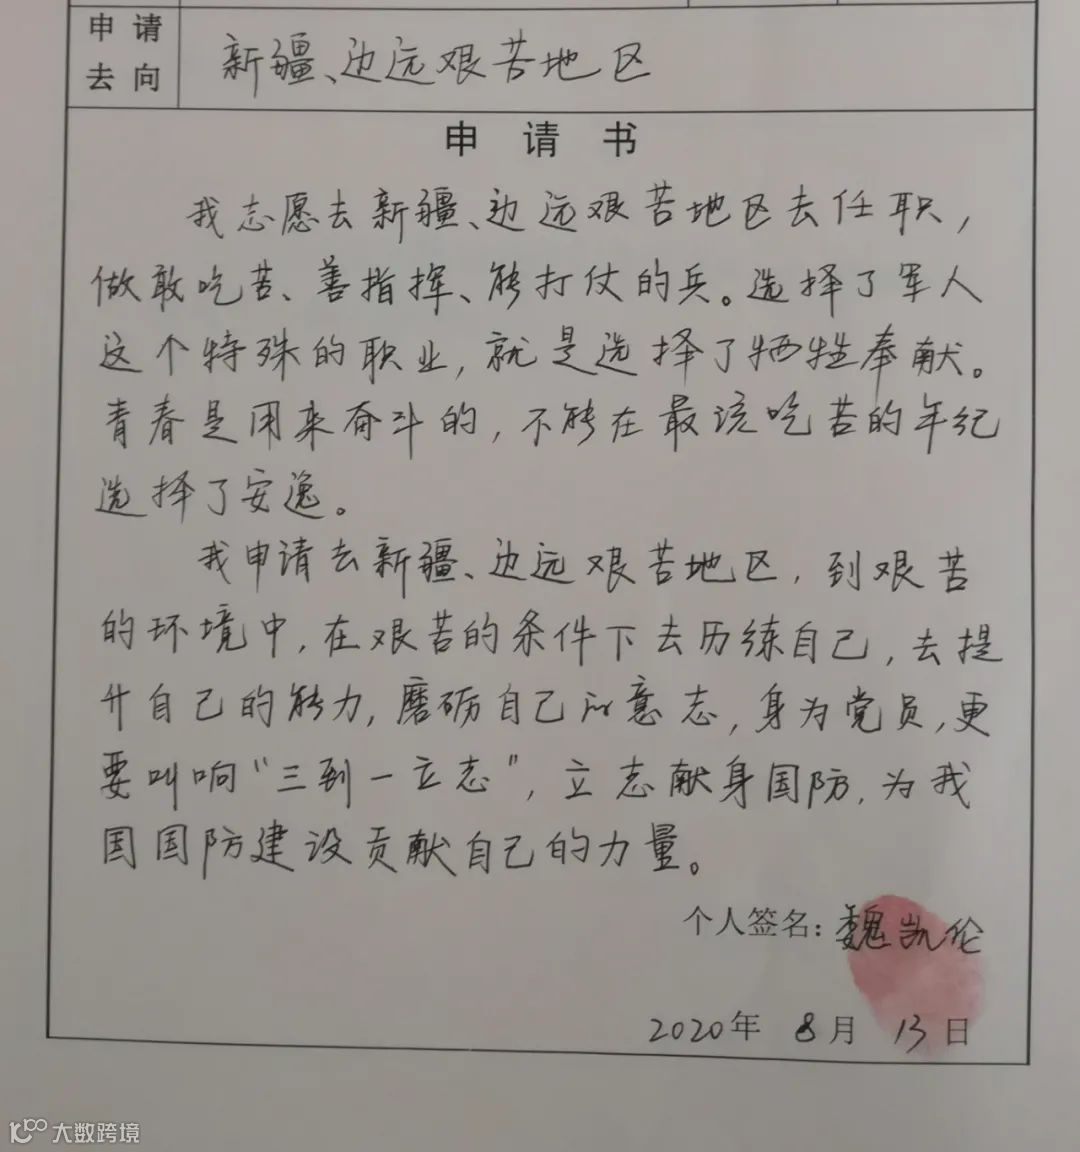 申请
去向
新疆、边远艰苦地区
申请书
我志愿去新疆、边远艰苦地区去任职，
做敢吃苦、善指挥、能打仗的兵。选择了军人
这个特殊的职业，就是选择了牺牲奉献。
青春是用来奋斗的，不能在最该吃苦的年纪
选择了安逸。
我申请去新疆、边远艰苦地区，到艰苦
的环境中，在艰苦的条件下去历练自己，去提
升自己的能力，磨砺自己的意志，身为党员，更
要叫响“三到一立志”，立志献身国防，为我
国国防建设贡献自己的力量。
个人签名：魏凯伦
2020年 8月 13日
大数跨境